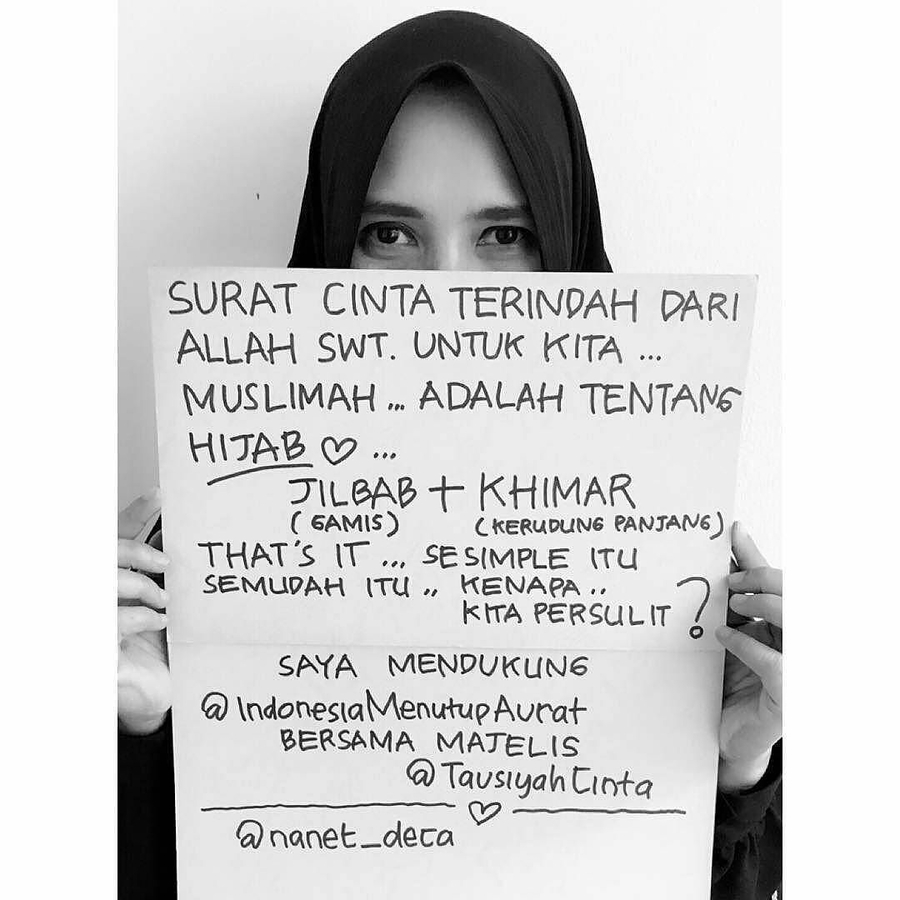 SURAT CINTA TERINDAH DARI
ALLAH SWT. UNTUK KITA ...
MUSLIMAH ... ADALAH TENTANG
HIJAB ♡ ...
JILBAB + KHIMAR
(GAMIS) (KERUDUNG PANJANG)
THAT'S IT ... SESIMPLE ITU
SEMUDAH ITU .. KENAPA ..
KITA PERSULIT ?
SAYA MENDUKUNG
@IndonesiaMenutupAurat
BERSAMA MAJELIS
@TausiyahCinta
@nanet_deca